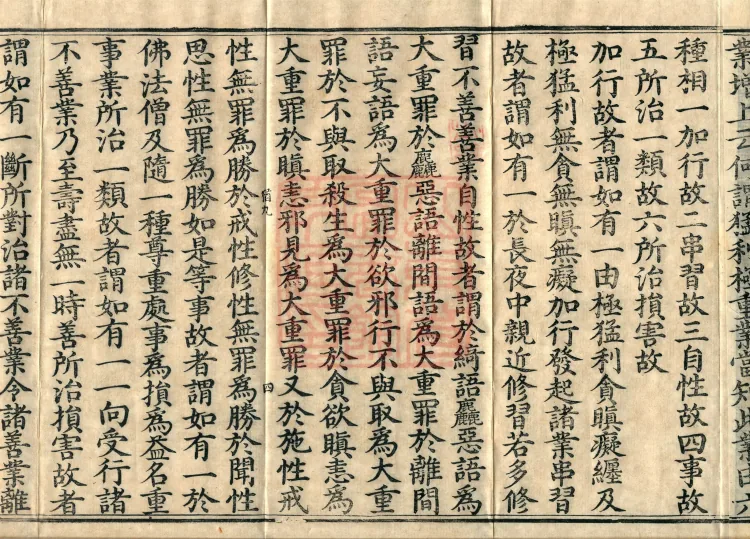 業增上云何謂猛利極重業當知此業由六
種相一加行故二串習故三自性故四事故
五所治一類故六所治損害故
加行故者謂如有一由極猛利貪瞋癡纏及
極猛利無貪無瞋無癡加行發起諸業串習
故者謂如有一於長夜中親近修習若多修
習不善善業自性故者謂於綺語麤惡語爲
大重罪於麤惡語離間語爲大重罪於離間
語妄語爲大重罪於欲邪行不與取爲大重
罪於不與取殺生爲大重罪於貪欲瞋恚爲
大重罪於瞋恚邪見爲大重罪又於施性戒
九 四
性無罪爲勝於戒性修性無罪爲勝於聞性
思性無罪爲勝如是等事故者謂如有一於
佛法僧及隨一種尊重處事爲損爲益名重
事業所治一類故者謂如有一一向受行諸
不善業乃至壽盡無一時善所治損害故者
謂如有一斷所對治諸不善業令諸善業離